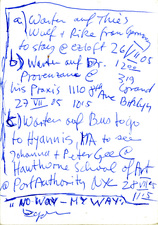 a) Warten auf Thies
Wulf + Rike from Germany
to stay @ ezloft 26/VII 05
b) Warten auf Dr.
Provenzano @
his Praxis 1110 8th Ave
27 VII 05 1015
c) Warten auf Bus to go
to Hyannis, MA to see
Johanna + Peter Gee @
Hawthorne School of Art
@ Port Authority NYC 28 VII 05
1125
"NO WAY - MY WAY."